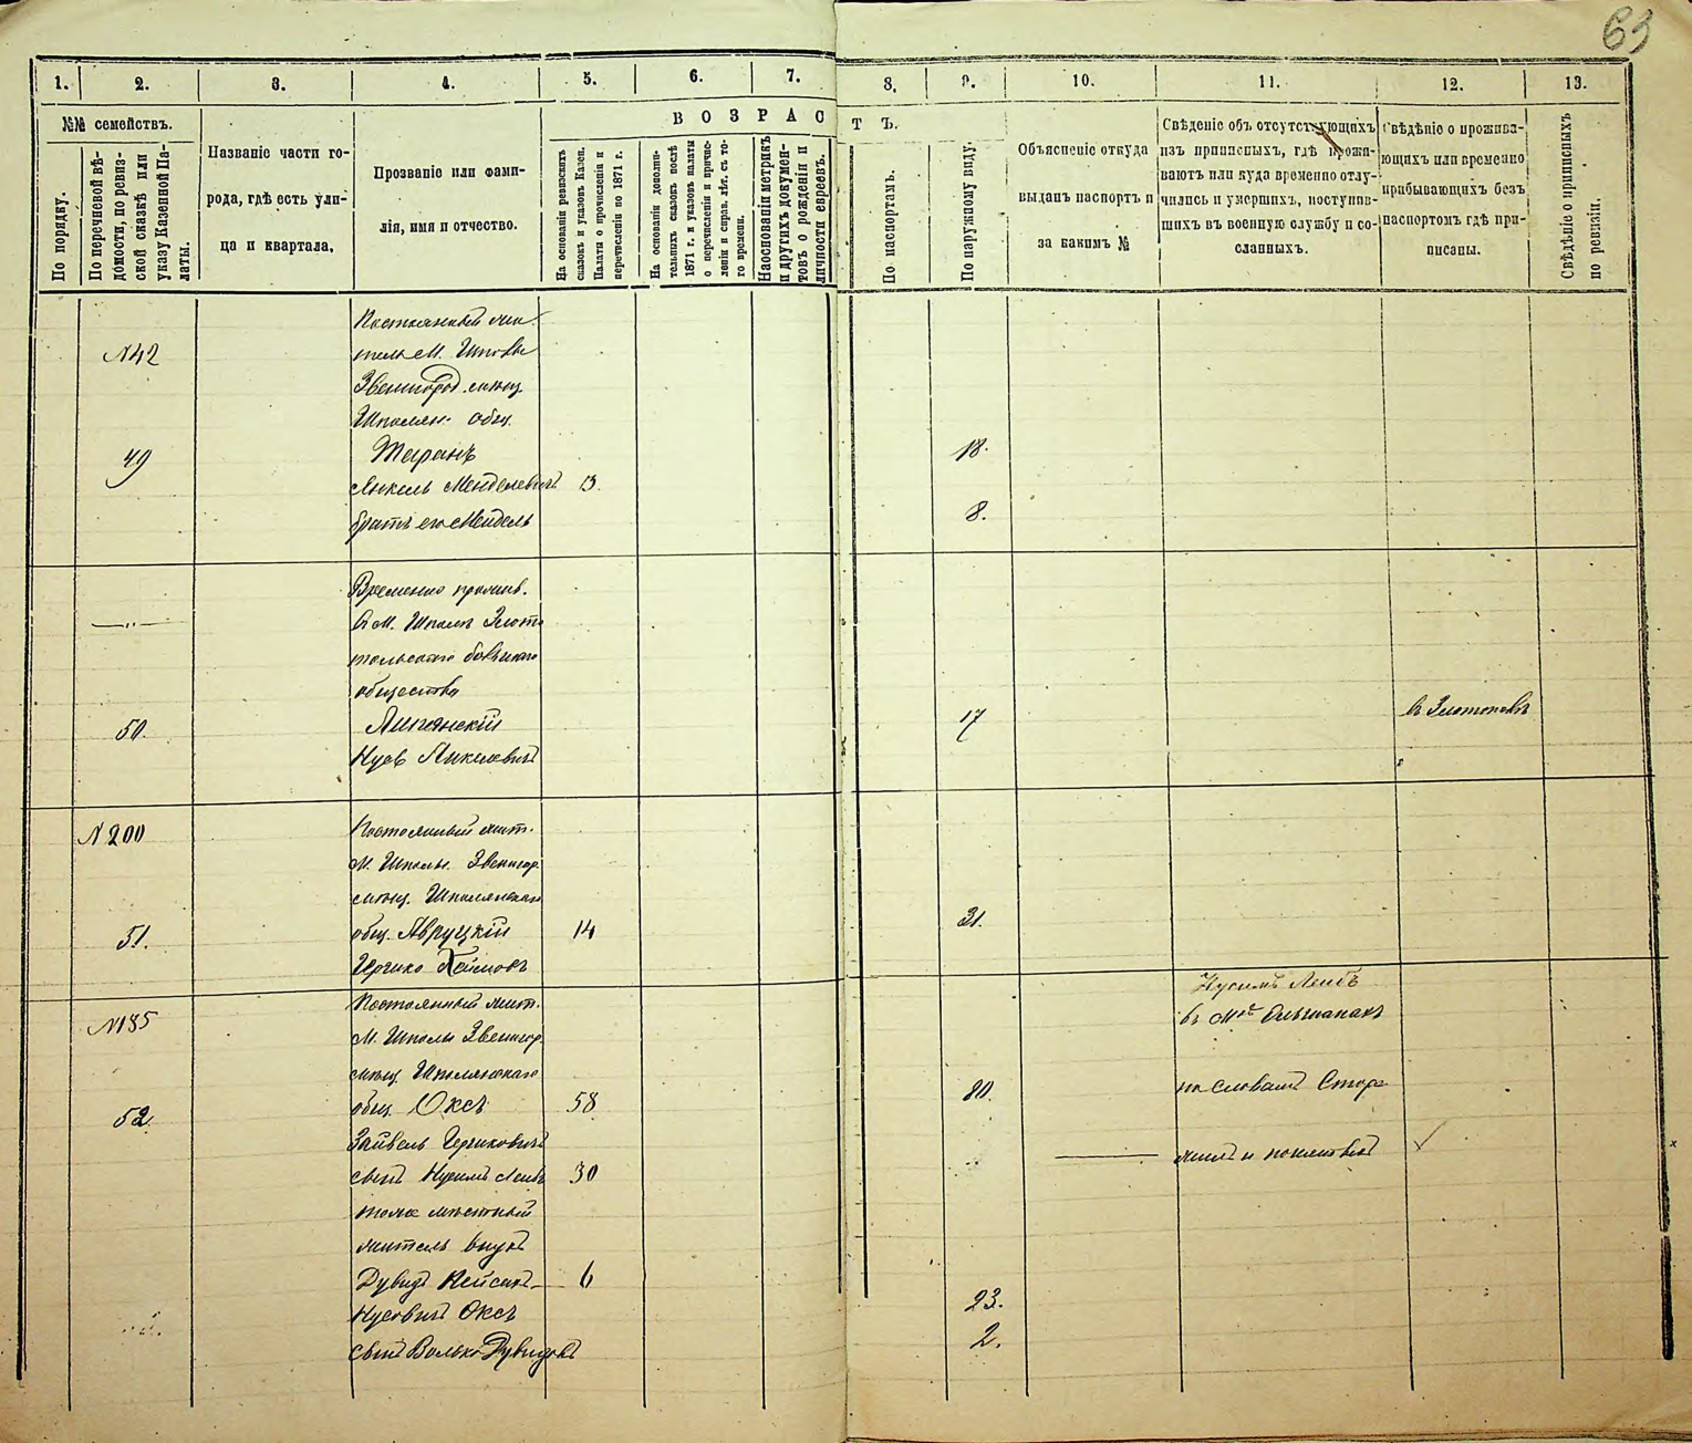 63
1. 2. 3. 4. 5. 6. 7. 8. 9. 10. 11. 12. 13.
№№ семействъ.
По порядку.
По перечневой вѣ-
домости, по ревиз-
ской сказкѣ или
указу Казенной Па-
латы.
Названіе части го-
рода, гдѣ есть ули-
ца и квартала.
Прозваніе или фами-
лія, имя и отчество.
ВОЗРАСТЪ.
На основаніи ревизскихъ
сказокъ и указовъ Казен.
Палаты о причисленіи и
перечисленіи по 1871 г.
На основаніи дополни-
тельныхъ сказокъ послѣ
1871 г. и указовъ палаты
о перечисленіи и причис-
леніи и справ. лѣт. съ то-
го времени.
На основаніи метрикъ
и другихъ докумен-
товъ о рожденіи и
личности евреевъ.
По паспортамъ.
По наружному виду.
Объясненіе откуда
выданъ паспортъ и
за какимъ №
Свѣденіе объ отсутствующихъ
изъ приписныхъ, гдѣ прожи-
ваютъ или куда временно отлу-
чились и умершихъ, поступив-
шихъ въ военную службу и со-
сланныхъ.
Свѣдѣніе о прожива-
ющихъ или временно
прибывающихъ безъ
паспортомъ гдѣ при-
писаны.
Свѣдѣніе о приписныхъ
по ревизіи.
Постоянный жи-
N42
тель М. Шполы
Звенигород. мѣщ.
Шполян. общ.
49 Таранъ 18.
Янкель Менделевичъ 13.
братъ его Мендель 8.
Временно прожив.
—"— въ М. Шполѣ Золото
общества
50. Липянскій 17 въ Золотоношѣ
Нусъ Янкелевичъ
N 200 Постоянный жит.
М. Шполы Звенигор.
мѣщ. Шполянскаго
51. общ. Авруцкій 14 31.
Гершко Хаимовъ
Постоянный жит. Нусимъ Лейбъ
N185 въ Мѣст Ольшанахъ
М. Шполы Звенигор.
мѣщ. Шполянскаго
52. общ. Оксъ 58 80. по словамъ
Зайвель Гершковичъ
сынъ Нусимъ Лейбъ 30
тоже мѣстный
житель внукъ
Дувидъ Лейбъ 6
Нусовичъ Оксъ 23.
сынъ Волько Дувидовъ 2.